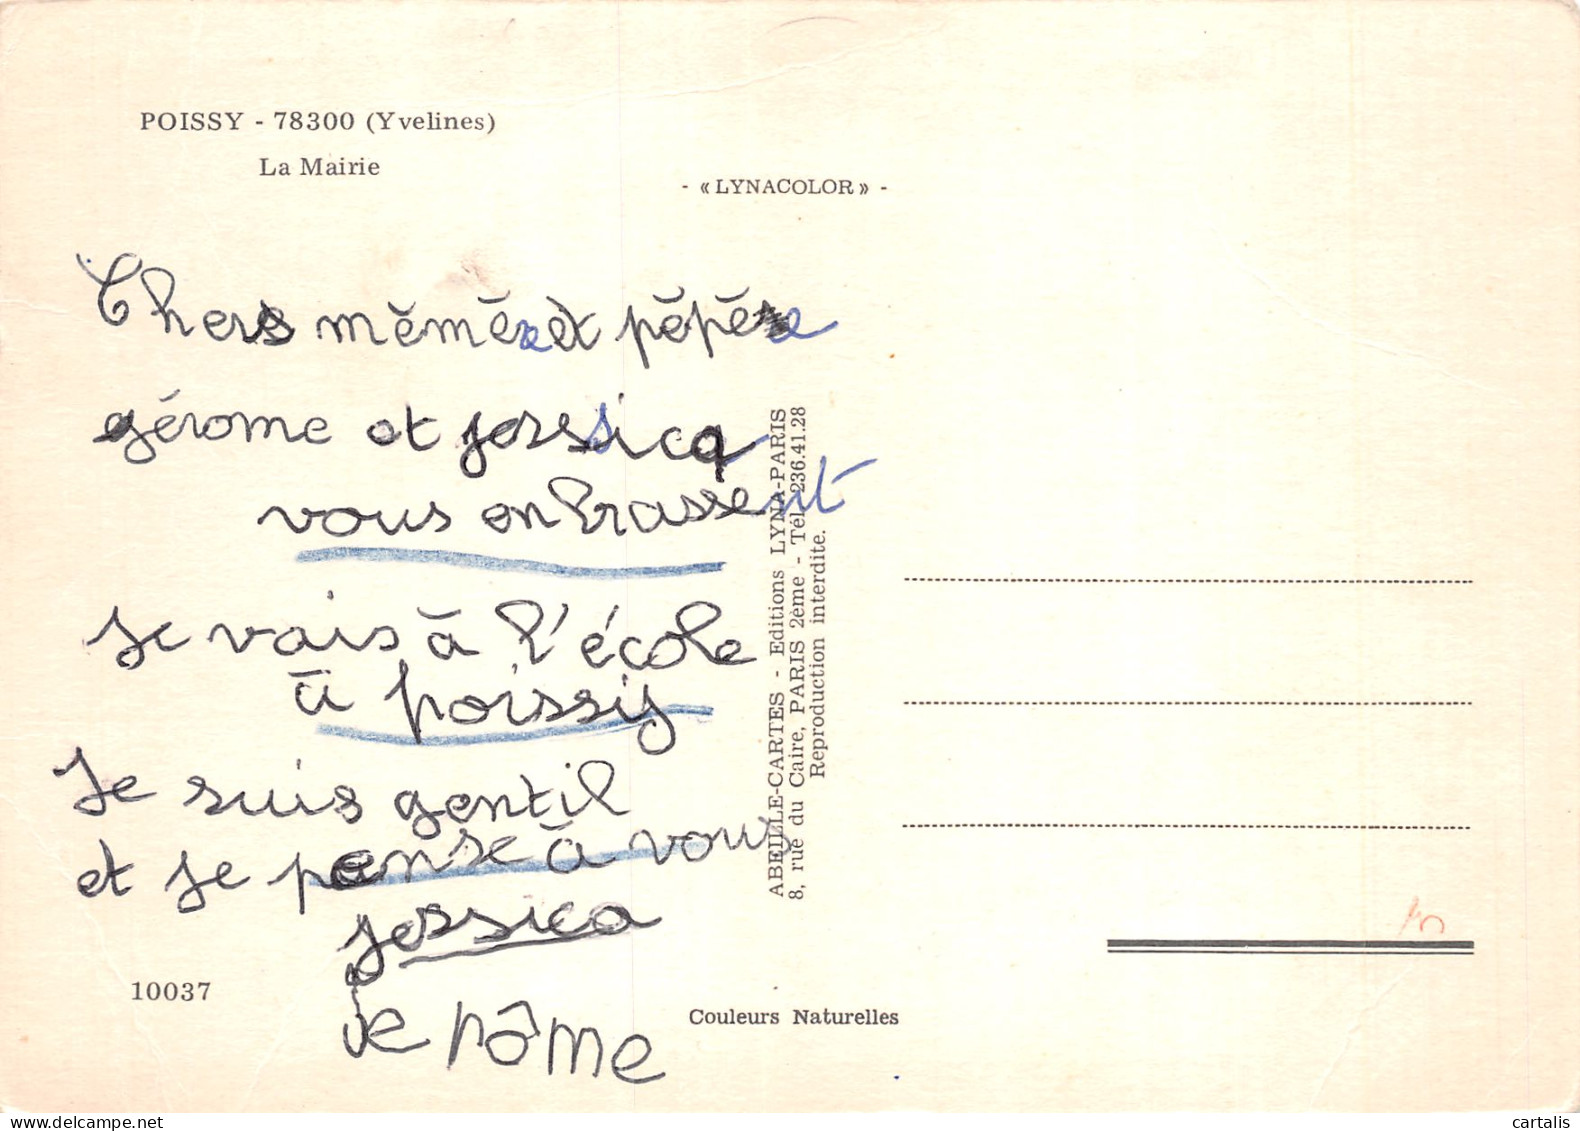 POISSY - 78300 (Yvelines)
La Mairie
- « LYNACOLOR » -
Chers mémére et pépére
gérome et jessica
vous enbrassent
je vais à l'école
à poissy
Je suis gentil
et je panse à vous
jessica
Jerôme
10037
ABEILLE-CARTES - Editions LYNA-PARIS
8, rue du Caire, PARIS 2ème - Tél. 236.41.28
Reproduction interdite.
Couleurs Naturelles
www.delcampe.net
cartalis